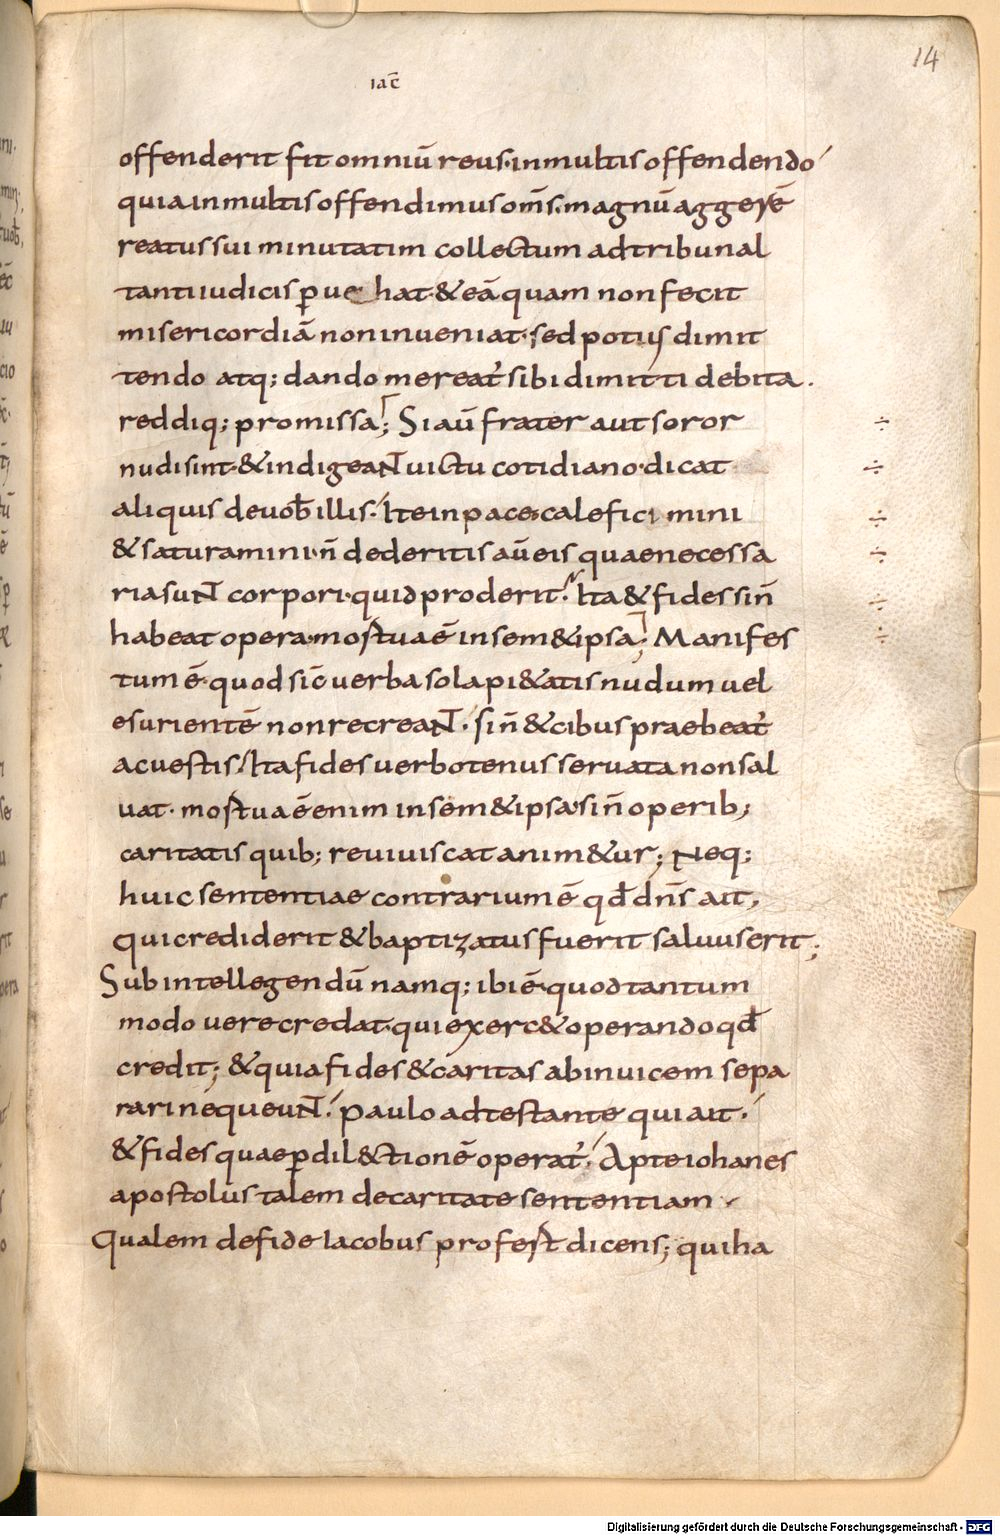 14
iac̄
offenderit fit omniū reus· in multis offendendo
quia in multis offendimus om̄s· magnū aggerē
reatus sui minutatim collectum ad tribunal
tanti iudicis ꝑ uehat· & eā quam non fecit
misericordiā non inueniat· sed potius dimit
tendo atq; dando mereat᷑ sibi dimitti debita.
reddiq; promissa; Si aū frater aut soror
nudi sint· & indigeant uictu cotidiano· dicat
aliquis de uob̄ illis· Ite in pace· calefici mini
& saturamini· n̄ dederitis aū eis quae necessa
ria sunt corpori· quid proderit· Ita & fides si n̄
habeat opera· mostua ē in sem& ipsa; Manifes
tum ē· quod sic̄ uerba sola pi&atis nudum uel
esurientē non recreant· si n̄ & cibus praebeat᷑
ac uestis· Ita fides uerbo tenus seruata non sal
uat· mostua ē enim in sem& ipsa· sin̄ operib;
caritatis quib; reuiuiscat anim&ur; Neq;
huic sententiae contrarium ē qd̄ dn̄s ait,
qui crediderit & baptizatus fuerit saluus erit;
Sub intellegendū namq; ibi ē· quod tantum
modo uere credat· qui exerc& operando qd̄
credit; & quia fides & caritas ab inuicem sepa
rari nequeunt· paulo adtestante qui ait·
& fides quae ꝑ dil&tionē operat᷑· Apte iohanes
apostolus talem de caritate sententiam
Qualem de fide Iacobus profest dicens; qui ha
Digitalisierung gefördert durch die Deutsche Forschungsgemeinschaft - DFG